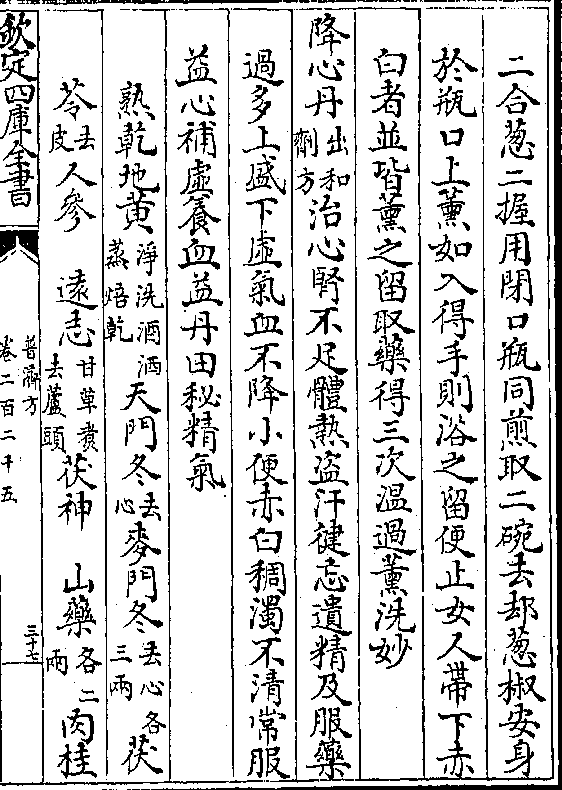 二合葱二握用閉口瓶同煎取二碗去却葱椒安身
於瓶口上薰如入得手則浴之留便止女人帶下赤
白者並皆薰之留取藥得三次溫過薰洗妙
降心丹出和劑方治心腎不足體熱盗汗健忘遺精及服藥
過多上盛下虛氣血不降小便赤白稠濁不清常服
益心補虛養血益丹田秘精氣
熟乾地黄淨洗酒洒蒸焙乾天門冬去心麥門冬去心各三兩茯
苓去皮人參 遠志甘草煮去蘆頭茯神 山藥各二兩肉桂
欽定四庫全書
普濟方
卷二百二十五
三十七